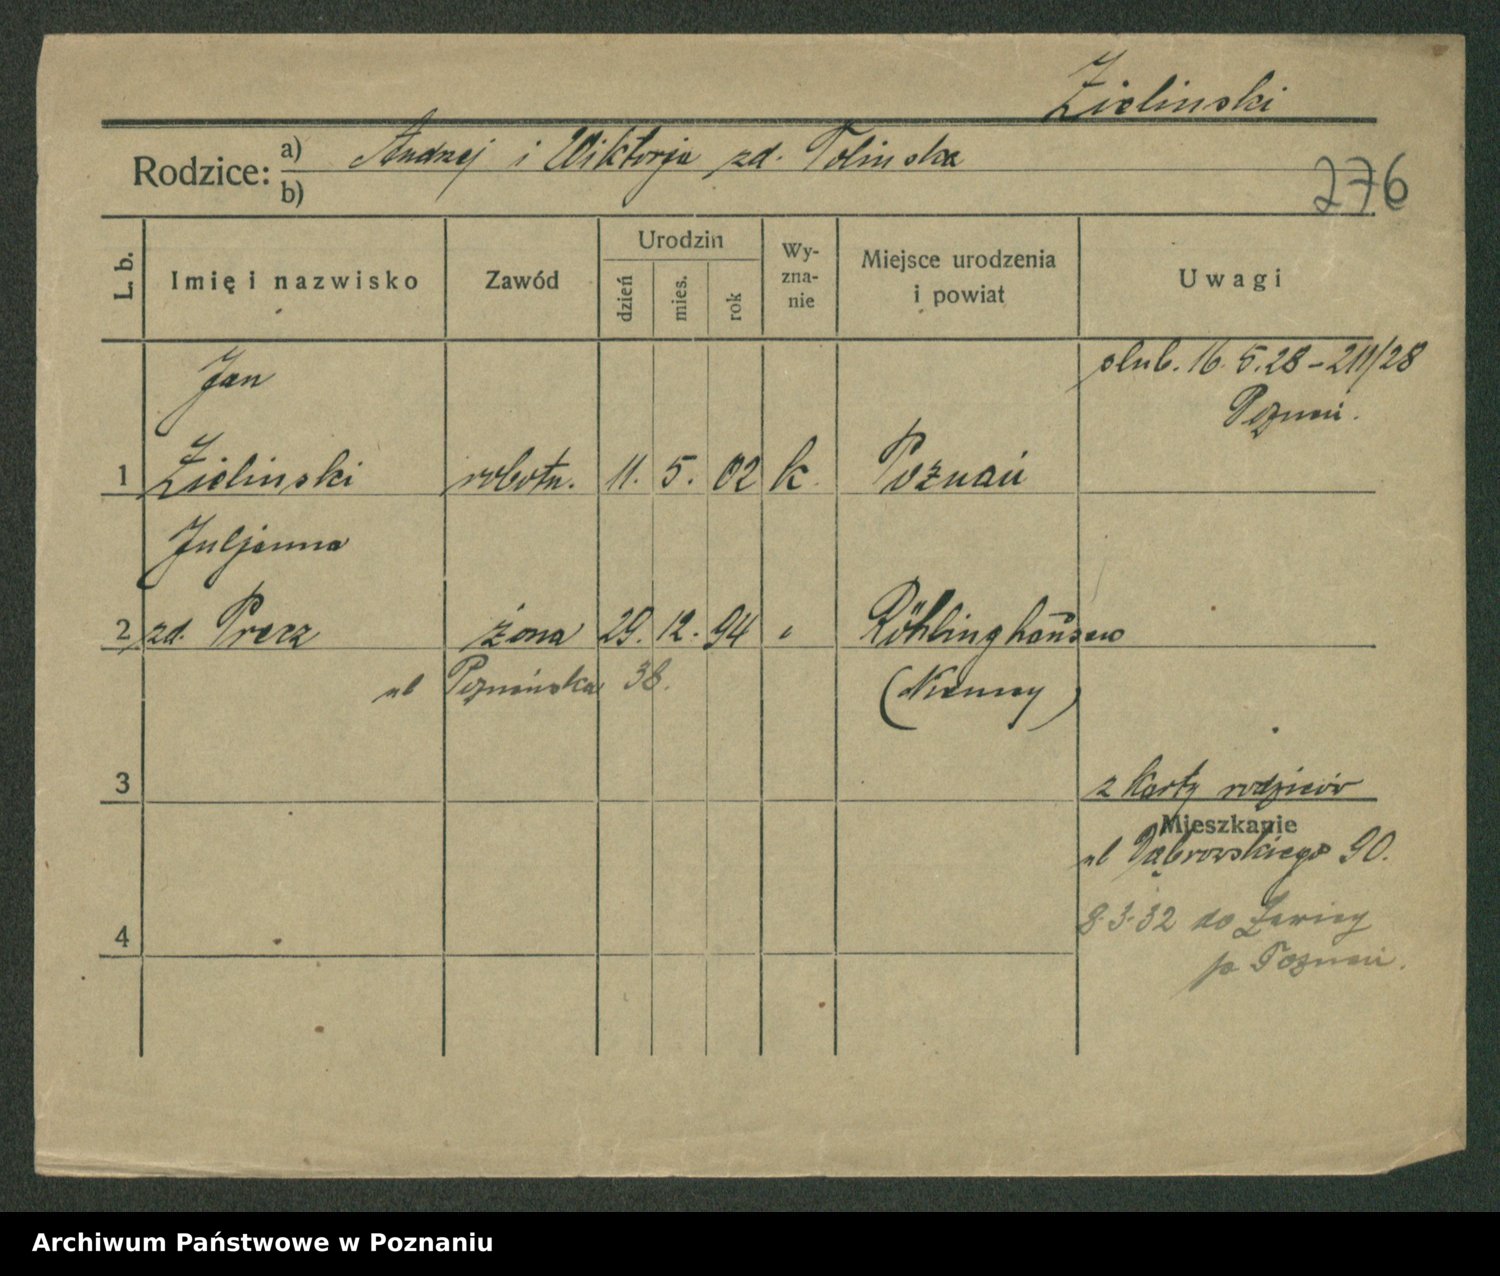 Zielinski
Rodzice: a) Andrzej i Wiktorja zd. Tolinska
b)
276
L. b.
Imię i nazwisko
Zawód
Urodzin
dzień
mies.
rok
Wy-
zna-
nie
Miejsce urodzenia
i powiat
Uwagi
Jan
ślub. 16. 5. 28 - 211/28
Poznań.
1 Zielinski robotn. 11. 5. 02 k. Poznań
Juljanna
2 zd. żona 29. 12. 94 " Röhlinghausen
ul Poznańska 38. (Niemcy)
3
z karty rodziców
Mieszkanie
ul Dąbrowskiego 90.
8.3.32 do Ławicy
4
p. Poznań.
Archiwum Państwowe w Poznaniu